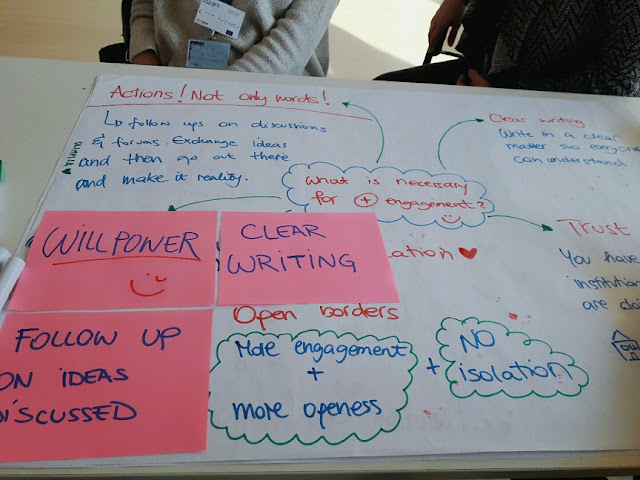 Actions! Not only words!
↳ follow ups on discussions
& forums. Exchange ideas
and then go out there
and make it reality.
Clear writing
Write in a clear
matter so everyone
can understand
What is necessary
for + engagement?
WILLPOWER
CLEAR
WRITING
Trust
You have
institution
are
Open borders
More engagement
+
more openess
+
NO
isolation
FOLLOW UP
ON IDEAS
DISCUSSED